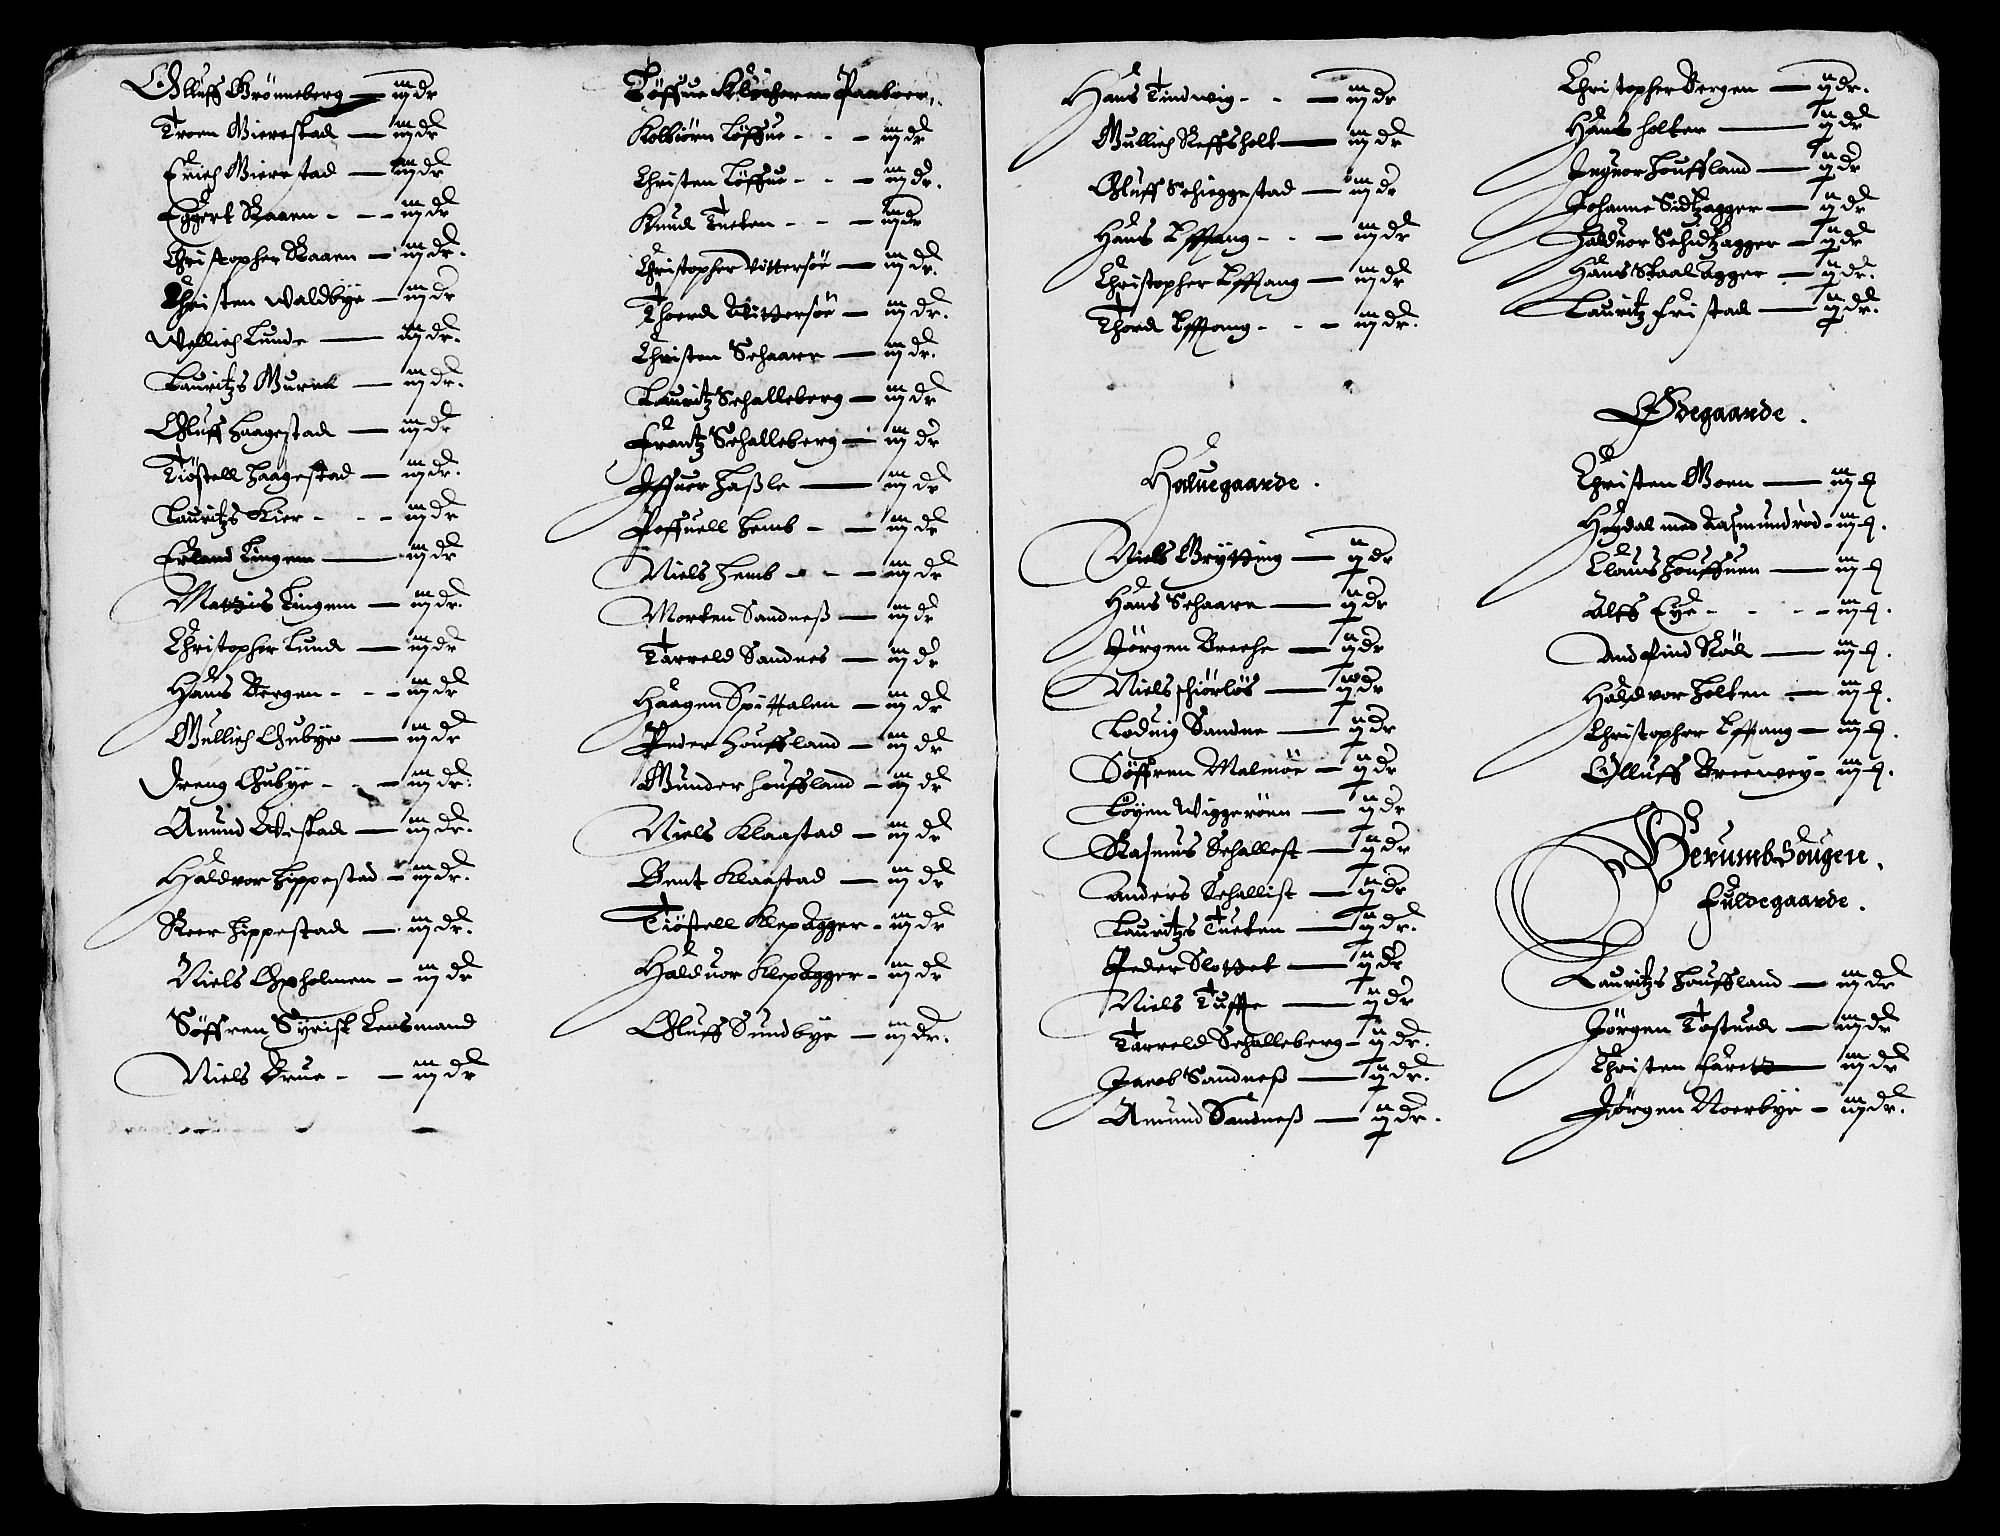 Olluff Grönneberg — iij dr
Troen Mierestad — iij dr
Erich Mierestad — iij dr
Eggert Raaen - - - iij dr
Christopher Raaen — iij dr.
Christen Waldbye — iij dr
Wellich Lunde — iij dr.
Lauritzs — iij dr.
Olluff Haagestad — iij dr
Tiöstell Haagestad — iij dr.
Lauritzs Kier - - - iij dr
Erland Lingem — iij dr
Mattzis Lingem — iij dr.
Christopher Lund — iij dr
Hans Bergen - - - iij dr
Gullich Gubye — iij dr
Dreng Gubye - - iij dr.
Amund Westad — iij dr.
Haldvor Hippestad - iij dr.
Reer Hippestad — iij dr.
Niels Oxholmen - iij dr
Söffren Syrist Lensmand
Niels Brue - — iij dr
Töffue Klöcheren Paaboer.
Kolbiörn Töffue - - - iij dr
Christen Töffue - - - iij dr.
Knud Tueten - - - iij dr
Christopher Vittersöe — iij dr.
Thoerd Vittersöe — iij dr.
Christen Schaare — iij dr.
Lauritz Schalleberg — iij dr
Frantz Schalleberg — iij dr
Iffuer Haßle — iij dr
Poffuell Hemb - — iij dr
Niels Hemb - - - iij dr
Morten Sandneß — iij dr
Tarreld Sandnes — iij dr
Haagen Spittalen — iij dr
Peder Houffland — iij dr
Gunder Houffland - iij dr
Niels Klaastad — iij dr
Bent Klaastad — iij dr
Tiöstell Klepagger - iij dr
Haldvor Klepagger - iij dr
Olluff Sundbye — iij dr.
Hans Tindvig - - — iij dr
Gullich Reffsholt — iij dr
Olluff Schieggestad — iij dr
Hans Efftang - - — iij dr
Christopher Efftang — iij dr
Thord Efftang - - - iij dr.
Haluegaarde.
Niels Grytting — ij dr
Hans Schaare — ij dr
Jörgen Breche — ij dr
Niels — ij dr
Lodvig Sandne — ij dr
Söffren Malmöe — ij dr
Töyen Wiggeröen — ij dr
Rasmus Schallest — ij dr
Anders Schallist — ij dr
Lauritzs Tueten — ij dr.
Peder Slottet — ij dr
Niels Tuffte — ij dr
Tarreld Schalleberg - ij dr.
Jacob Sandneß — ij dr.
Amund Sandneß — ij dr.
Christopher Bergen — ij dr.
Hans Holter — ij dr
Ingvor Houffland — ij dr
Johanne Sidtzagger — ij dr
Haldvor Schidtzagger — ij dr
Hans Skaal Agger — ij dr.
Lauritz Fristad — ij dr.
Ödegaarde.
Christen Moen — iij
Heydal med Rasmundröd - iij.
Claus Houffuen — iij
Alts Eye - - - iij.
Andfind Röd — iij.
Haldvor Holten — iij.
Christopher Effttang — iij.
Olluff Breevey - iij.
Herumb Sougen.
Fuldegaarde.
Lauritzs Houffland — iij dr
Jörgen Tostued — iij dr
Christen Farett — iij dr
Jörgen Noerbye - iij dr.